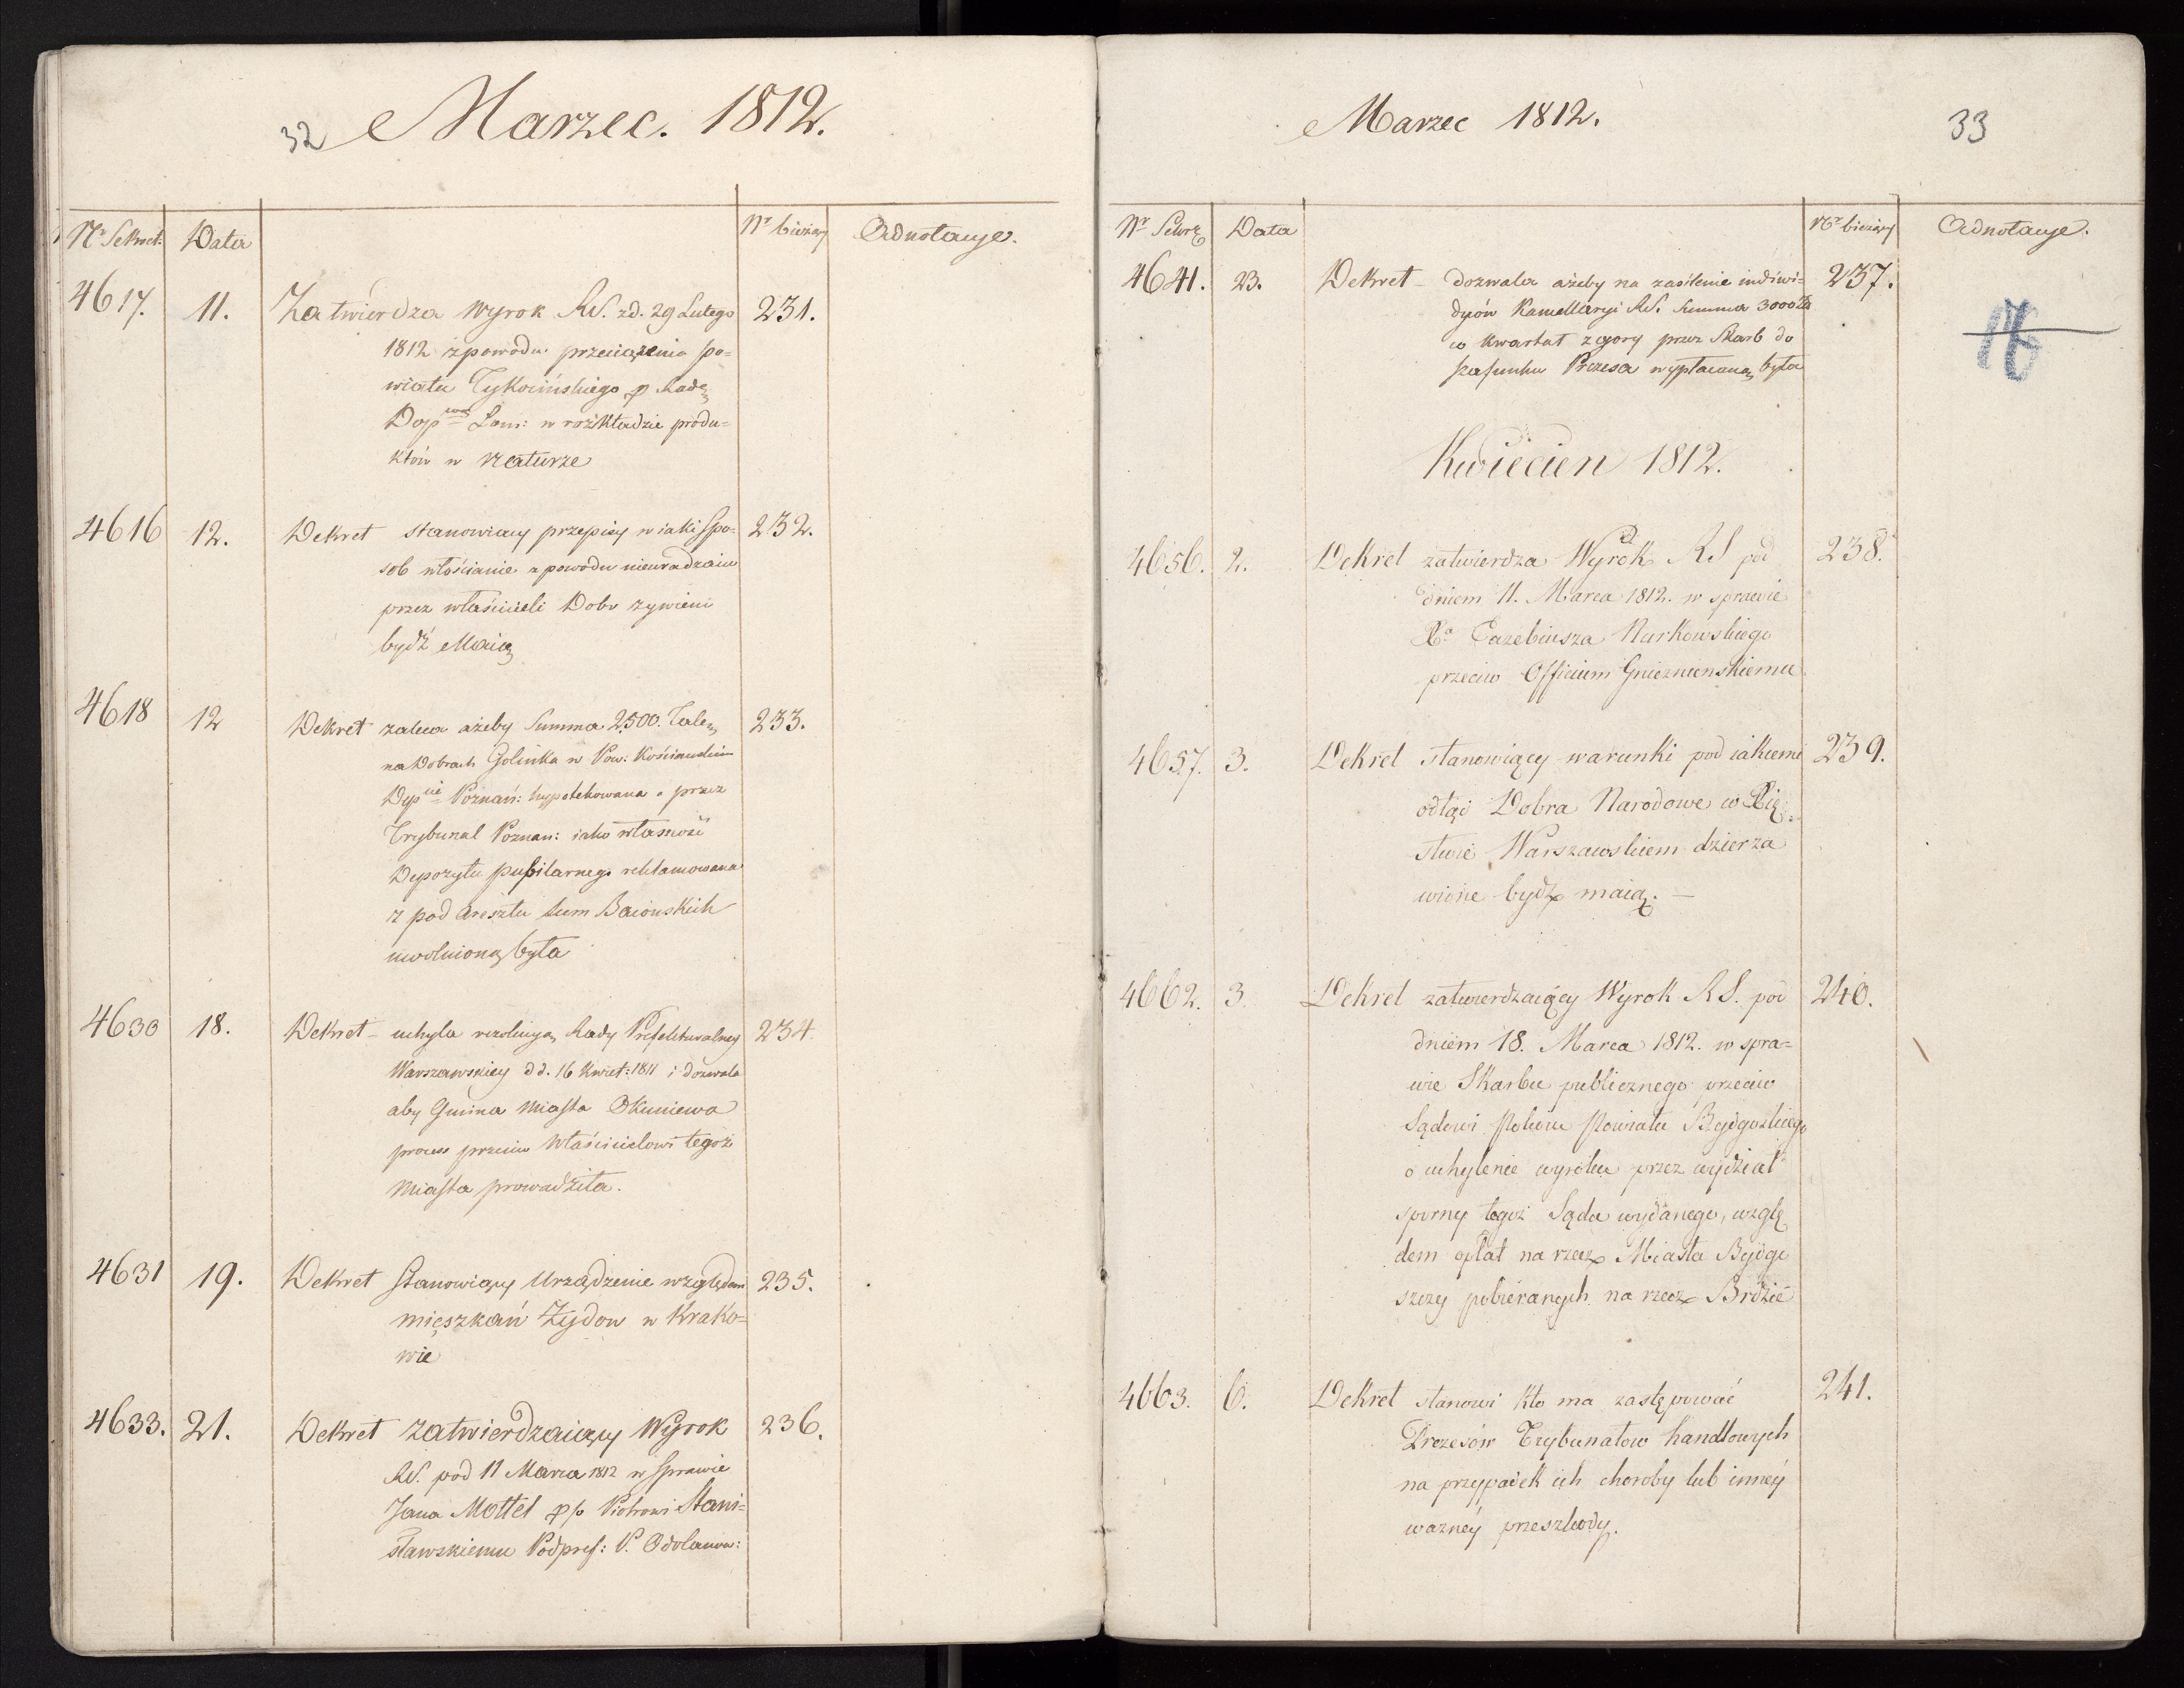 32 Marzec. 1812.
Nr Sekret. Data Nr bieżący Adnotacye.
4617. 11. Zatwierdza Wyrok RS. zd. 29 Lutego 231.
1812 zpowodu przeciążenia po=
wiatu Tykocińskiego p Radę
Dep Łom: w rozkładzie produ=
któw w naturze
4616 12. Dekret stanowiący przepisy w iaki spo= 232.
sob włościanie z powodu nieuradzaiu
przez właścicieli Dobr żywieni
bydź Maią
4618 12 Dekret zaleca ażeby Summa 2,500. Tal. 233.
na Dobrach Golinka w Pow: Kościańskim
Depcie Poznań: hypotekowana a przez
Trybunal Poznan: iako własność
Depozytu pupilarnego reklamowana
z pod aresztu sum Baiońskich
uwolnioną była
4630 18. Dekret – uchyla rezolucyą Rady Prefekturalney 234.
Warszawskiey dd. 16 Kwiet: 1811 i dozwala
aby Gmina Miasta Okuniewa
process przeciw Właścicielowi tegoż
Miasta prowadziła.
4631 19. Dekret Stanowiący Urządzenie względem 235.
mieszkań Żydow w Krako=
wie
4633. 21. Dekret zatwierdzaiący Wyrok 236.
RS. pod 11 Marca 1812 w Sprawie
Jana Mottel p/o Piotrowi Stani=
sławskiemu Podpref: P. Odolanow:
Marzec 1812. 33
Nr Sekre Data Nr bieżący Adnotacye.
4641. 23. Dekret – dozwala ażeby na zasilenie indiwi= 237.
dyów Kancellaryi RS. Summa 3000 Zł
co kwartał z gory przez Skarb do
szafunku Prezesa wypłacaną była
Kwiecien 1812.
4656. 2. Dekret zatwierdza Wyrok RS pod 238.
dniem 11. Marca 1812. w sprawie
Xa Eazebiusza Nurkowskiego
przeciw Officium Gnieznienskiemu
4657. 3. Dekret stanowiący warunki pod iakiemi 239.
odtąd Dobra Narodowe w Xię=
stwie Warszawskiem dzierza
wione bydź maią. –
4662. 3. Dekret zatwierdzaiący Wyrok RS. pod 240.
dniem 18. Marca 1812. w spra=
wie Skarbu publicznego przeciw
Sądowi Pokoiu Powiatu Bydgoskiego
o uchylenie wyroku przez wydział
sporny tegoż Sądu wydanego, wzglę
dem opłat na rzecz Miasta Bydgo
szczy pobieranych na rzece Brdzie
4663. 6. Dekret stanowi kto ma zastępować 241.
Prezesów Trybunałow handlowych
na przypadek ich choroby lub inney
ważney przeszkody.